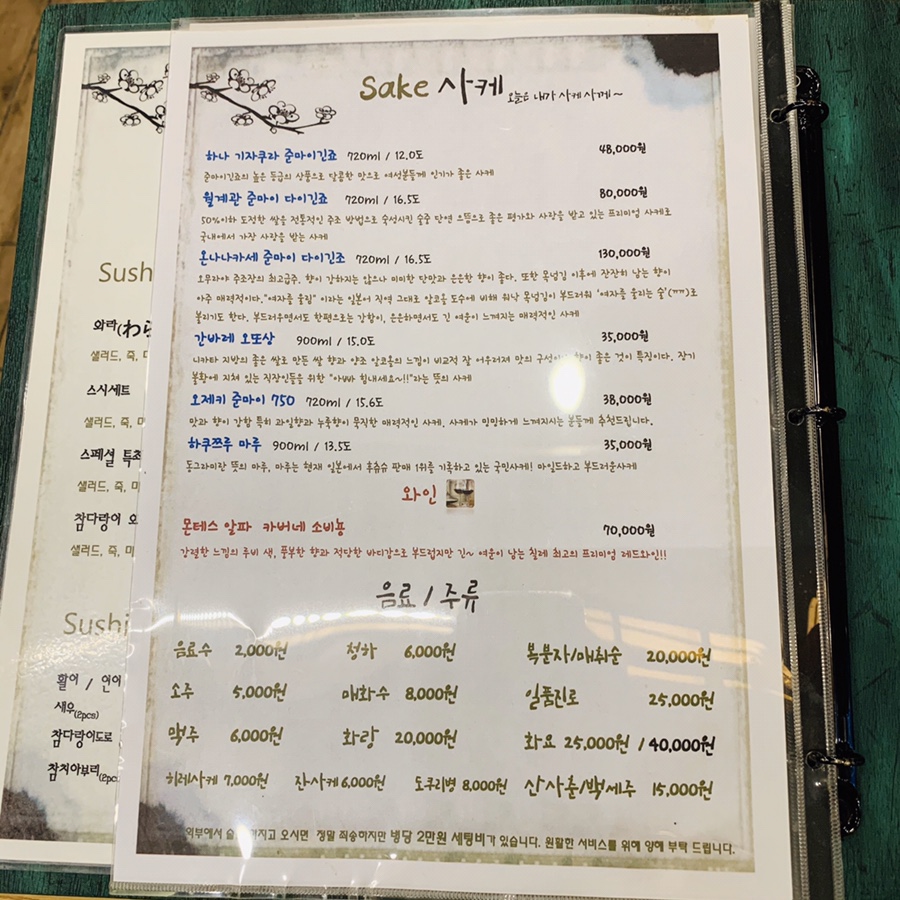 Sake 사케 오늘은 내가 사케 사께~
하나 기자쿠라 준마이긴죠 720ml / 12.0도 48,000원
준마이긴죠의 높은 등급의 상품으로 달콤한 맛으로 여성분들께 인기가 좋은 사케
월계관 준마이 다이긴죠 720ml / 16.5도 80,000원
50%이하 도정한 쌀을 전통적인 주조 방법으로 숙성시킨 술중 단연 으뜸으로 좋은 평가와 사랑을 받고 있는 프리미엄 사케로
국내에서 가장 사랑을 받는 사케
온나나카세 준마이 다이긴조 720ml / 16.5도 130,000원
오무라야 주조장의 최고급주. 향이 강하지는 않으나 미미한 단맛과 은은한 향이 좋다. 또한 목넘김 이후에 잔잔히 남는 향이
아주 매력적이다."여자를 울림" 이라는 일본어 직역 그대로 알코올 도수에 비해 워낙 목넘김이 부드러워 '여자를 울리는 술'(ㅠㅠ)로
불리기도 한다. 부드러우면서도 한편으로는 강함이, 은은하면서도 긴 여운이 느껴지는 매력적인 사케
간바레 오또상 900ml / 15.0도 35,000원
니카타 지방의 좋은 쌀로 만든 쌀 향과 양조 알코올의 느낌이 비교적 잘 어우러져 맛의 향이 좋은 것이 특징이다. 장기
불황에 지쳐 있는 직장인들을 위한 "아빠 힘내세요~!!"라는 뜻의 사케
오제키 준마이 750 720ml / 15.6도 38,000원
맛과 향이 강함 특히 과일향과 누룩향이 묵직한 매력적인 사케. 사케가 밍밍하게 느껴지시는 분들께 추천드립니다.
하쿠쯔루 마루 900ml / 13.5도 35,000원
동그라미란 뜻의 마루, 마루는 현재 일본에서 후츠슈 판매 1위를 기록하고 있는 국민사케! 마일드하고 부드러운사케
와인
몬테스 알파 카버네 소비뇽 70,000원
강렬한 느낌의 루비 색, 풍부한 향과 적당한 바디감으로 부드럽지만 긴~ 여운이 남는 칠레 최고의 프리미엄 레드와인!!
음료 / 주류
음료수 2,000원 청하 6,000원 복분자/매취순 20,000원
소주 5,000원 매화수 8,000원 일품진로 25,000원
맥주 6,000원 화랑 20,000원 화요 25,000원 / 40,000원
히레사케 7,000원 잔사케 6,000원 도쿠리병 8,000원 산사춘/백세주 15,000원
외부에서 가지고 오시면 정말 죄송하지만 병당 2만원 세팅비가 있습니다. 원활한 서비스를 위해 양해 부탁 드립니다.
Sush
와라(わら
샐러드, 죽, 미
스시세트
샐러드, 죽, 미
스페셜 특
샐러드, 죽, 미
참다랑어 오
샐러드, 죽, 미
Sushi
활어 / 연어
새우(2pcs)
참다랑어도로
참치아부리(2pc